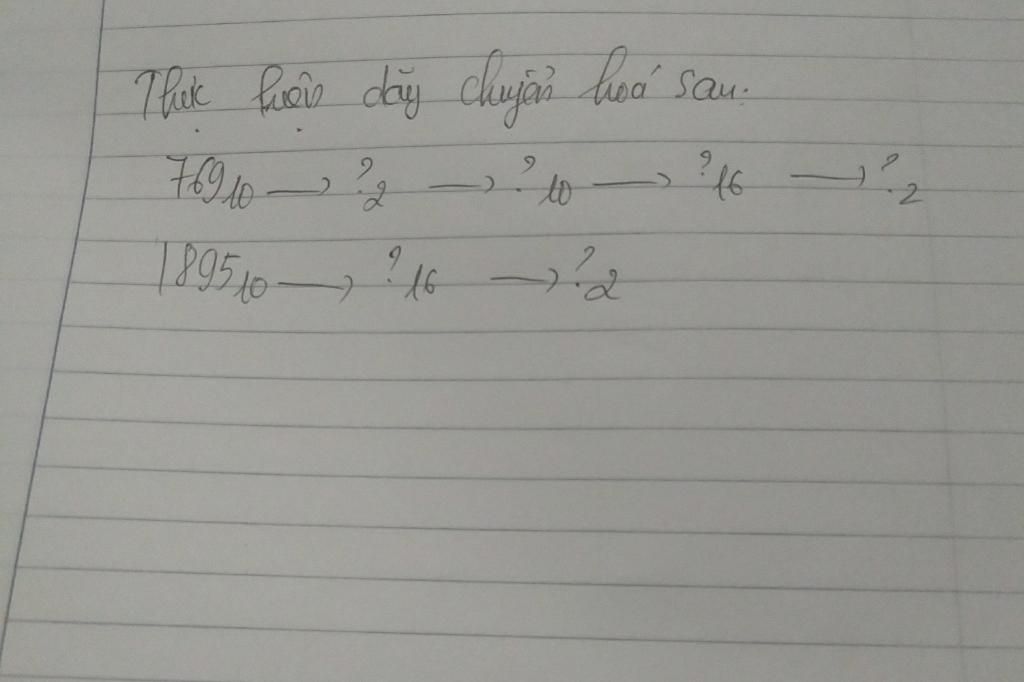 Thực hiện dãy chuyển hoá sau.
769₁₀ → ?₂ → ?₁₀ → ?₁₆ → ?₂
1895₁₀ → ?₁₆ → ?₂